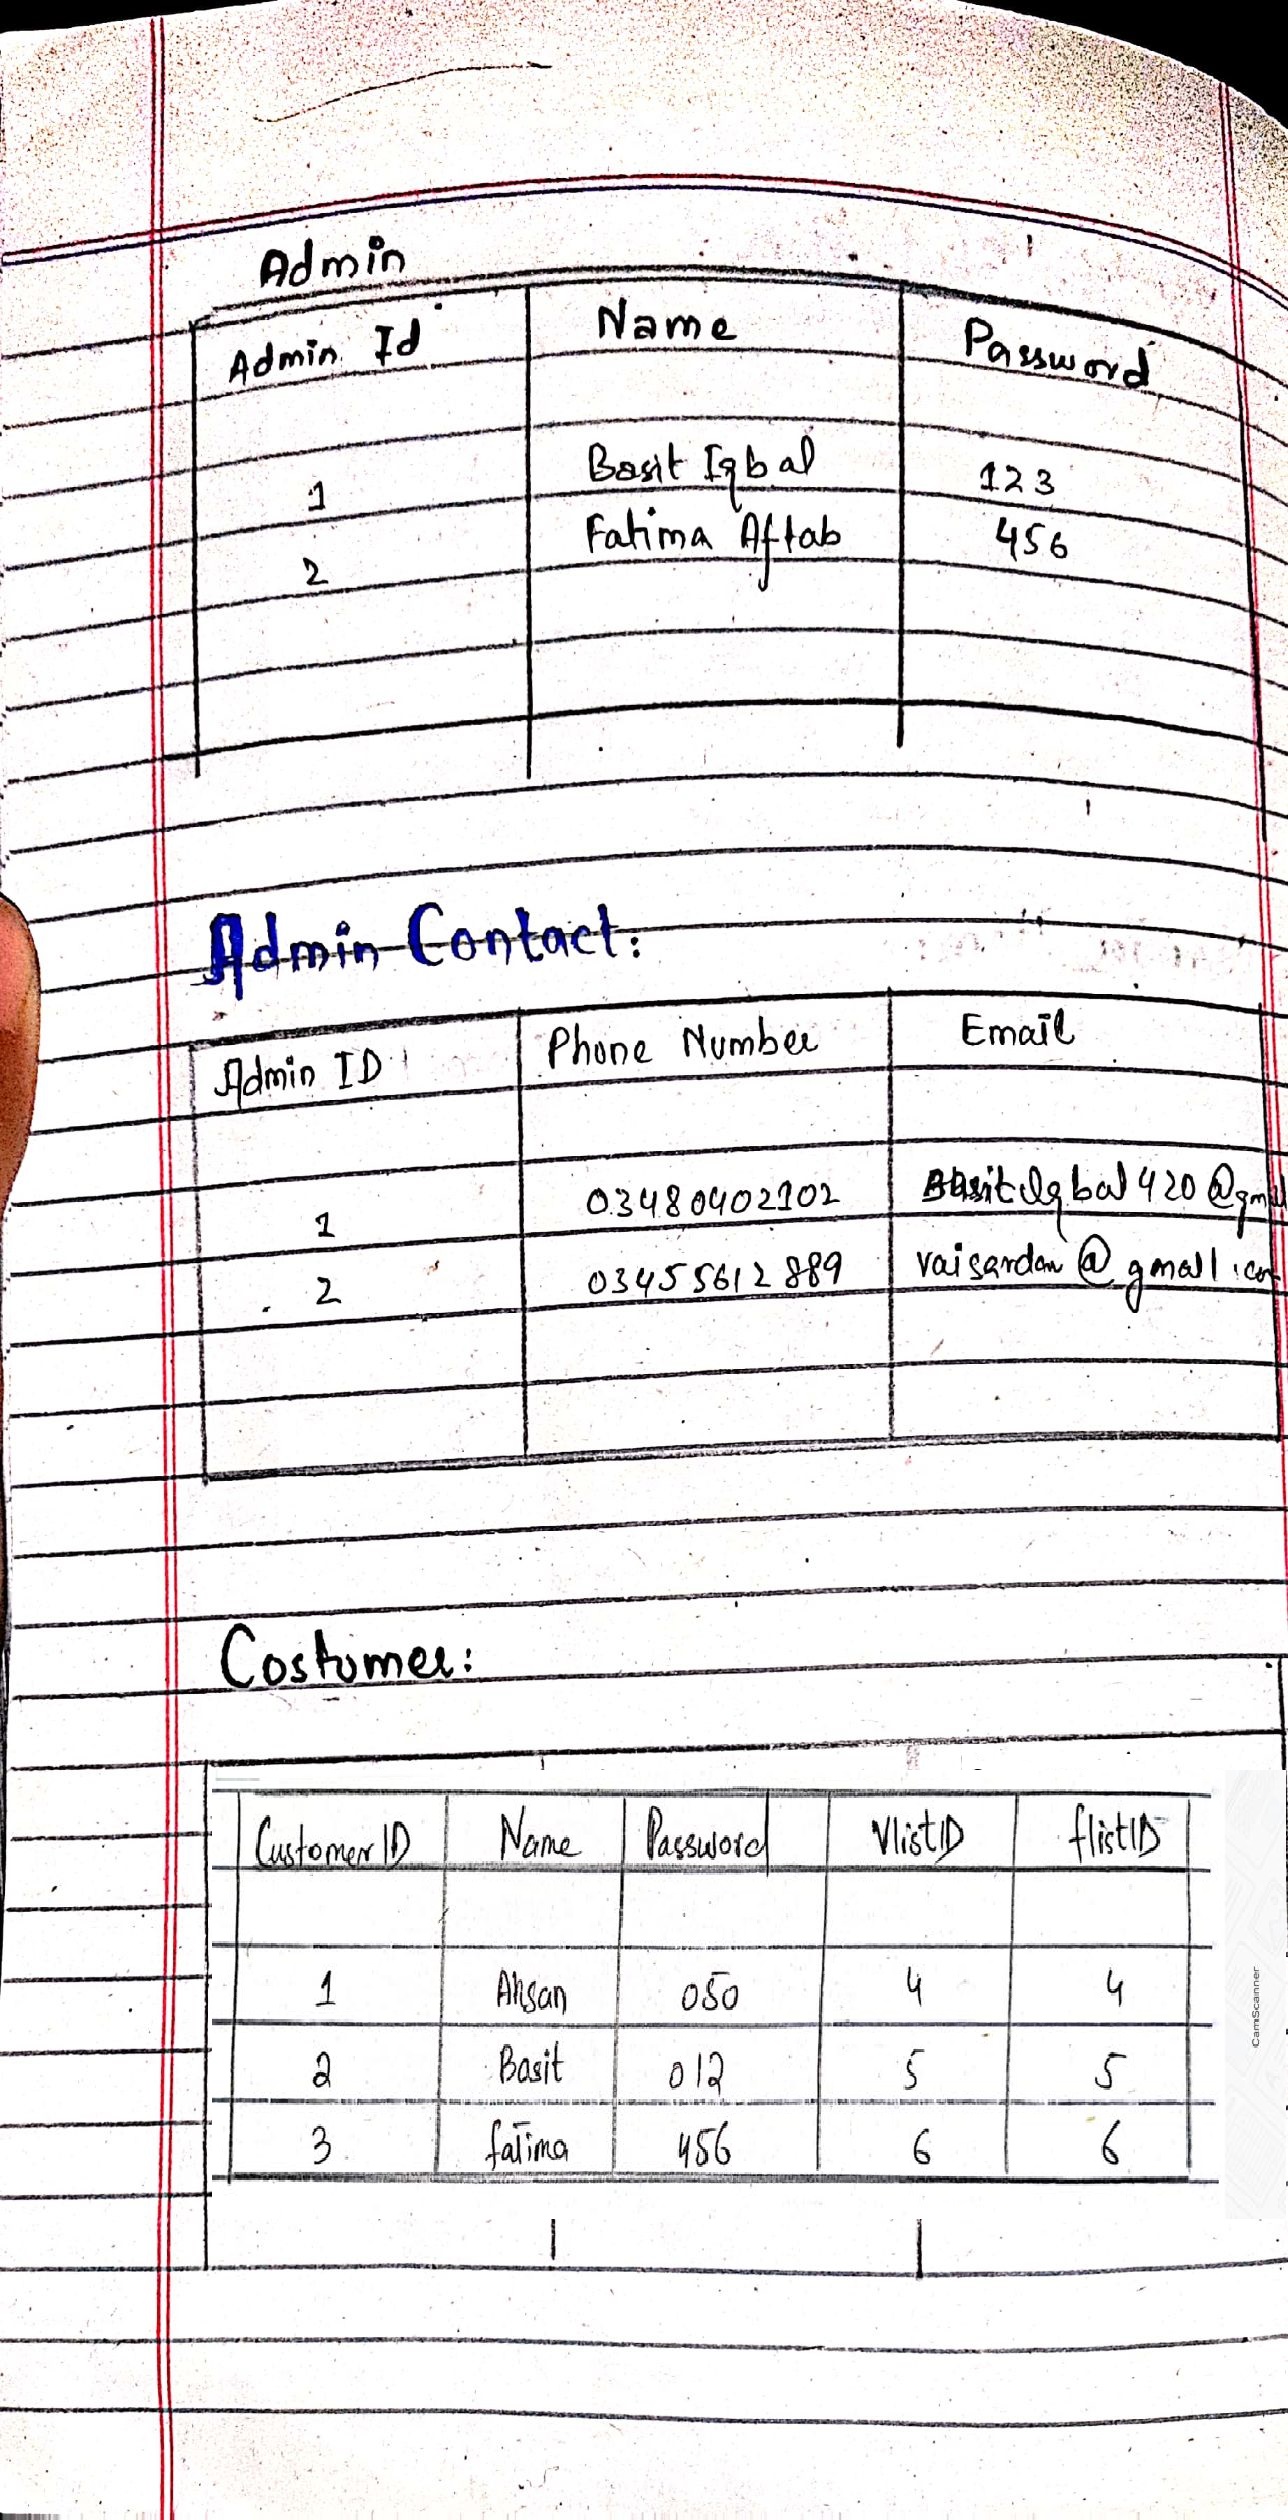 Admin
Admin Id Name Password
1 Basit Iqbal 123
2 Fatima Aftab 456
Admin Contact:
Admin ID Phone Number Email
1 03480402102
2 03455612889 raisardan@gmail.com
Costumer:
CustomerID Name Password VlistID flistID
1 Ahsan 050 4 4
2 Basit 012 5 5
3 fatima 456 6 6
CamScanner